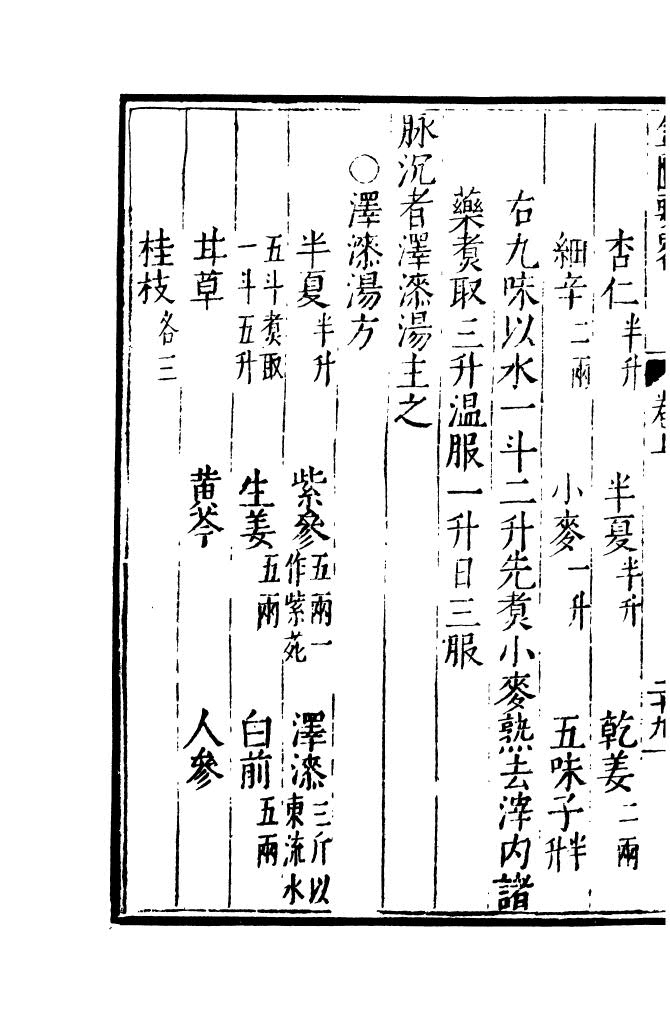 杏仁半升 半夏半升 乾姜二兩
細辛二兩 小麥一升 五味子半升
右九味以水一斗二升先煑小麥熟去滓内諸
藥煑取三升温服一升日三服
脉沉者澤漆湯主之
〇澤漆湯方
半夏半升 紫參五兩一作紫菀 澤漆三斤以東流水
五斗煑取一斗五升 生姜五兩 白前五兩
甘草 黄芩 人參
桂枝各三